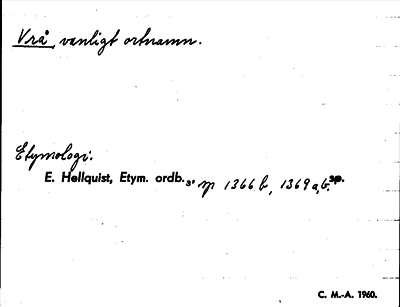 Vrå, vanligt ortnamn.
Etymologi:
E. Hellquist, Etym. ordb.3, sp 1366 b, 1369 a, b.
C. M.-A. 1960.